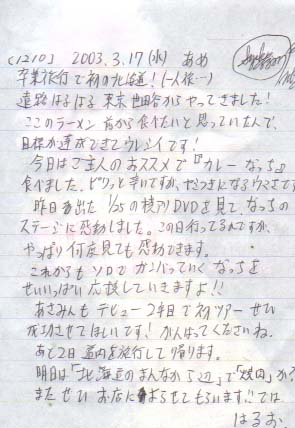 (1210) 2003.3.17(水) あめ
卒業旅行で初の北海道！(一人旅…)
遠路はるばる東京世田谷からやってきました！
ここのラーメン前から食べたいと思っていたんで、
目標が達成できてウレシイです！
今日はご主人のおススメで『カレーなっち』
食べました。ピリッと辛いですが、やみつきになるウマさです
昨日発出た 1/25の模入りDVDを見て、なっちの
ステージに感動しました。この日行ってるんですが、
やっぱり何度見ても感動できます。
これからもソロでガンバっていくなっちを
せいいっぱい応援していきますよ!!
あさみんもデビュー2年目で初ツアーぜひ
成功させてほしいです！がんばってくださいね。
あと2日道内を旅行して帰ります。
明日は「北海道のまんなから辺」で"焼肉"か?
またぜひお店によらせてもらいます!!では
はるお